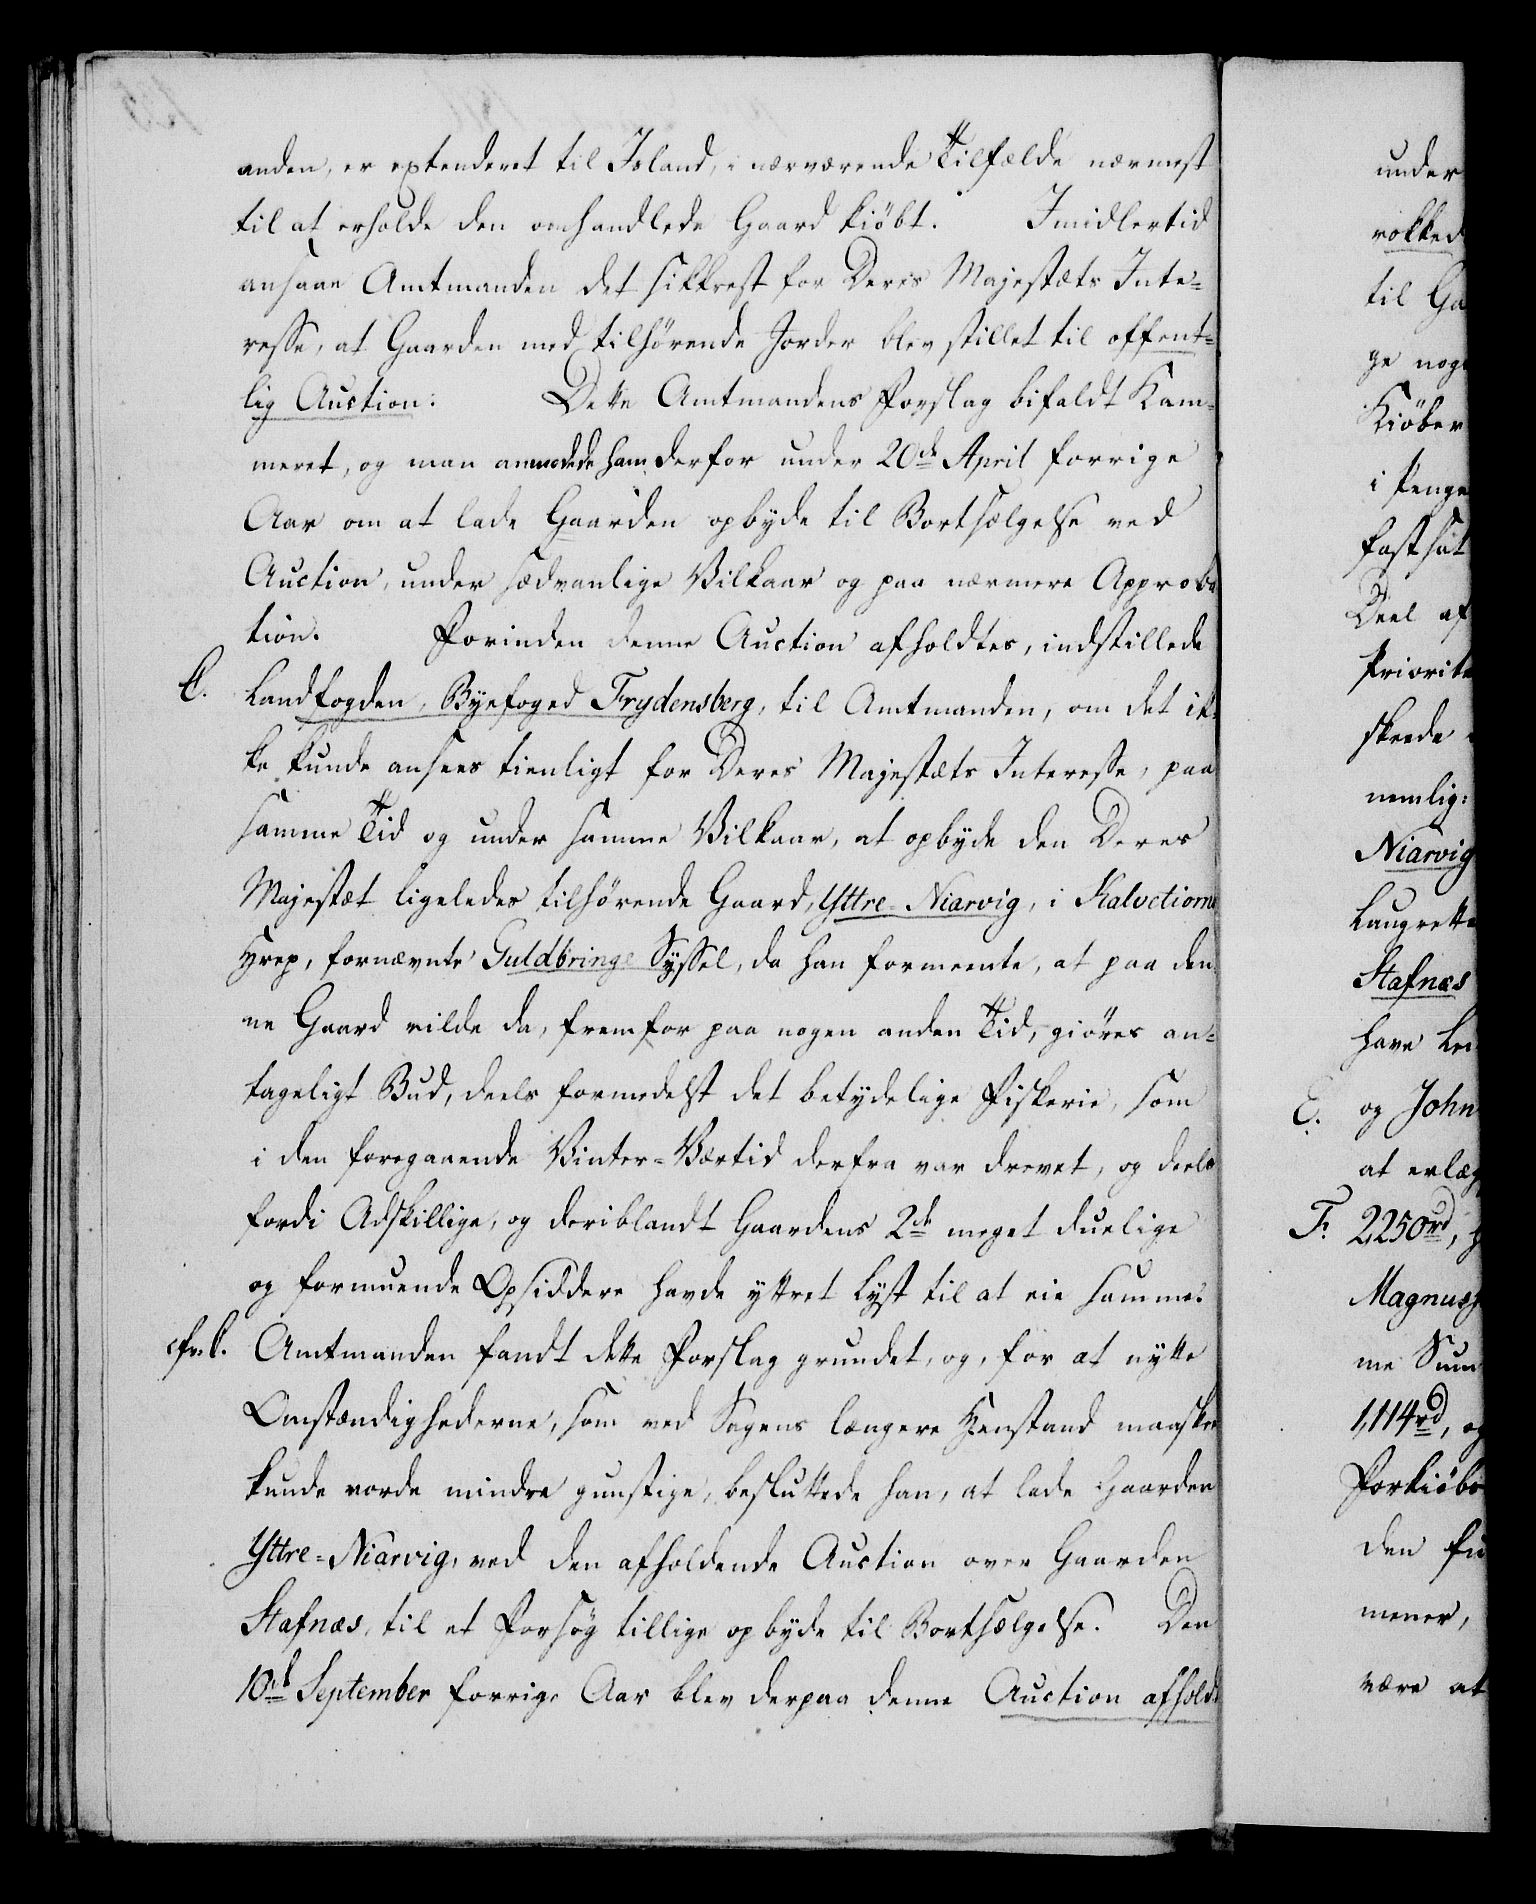 anden, er extenderet til Island, i nærværende Tilfælde nærmest
til at erholde den omhandlede Gaard kiöbt. Imidlertid
ansaae Amtmanden det sikkrest for Deres Majestæts Inte-
resse, at Gaarden med tilhörende Jorder blev stillet til offent-
lig Auction. Dette Amtmandens Forslag bifaldt Kam-
meret, og man anmodede ham derfor under 20de April forrige
Aar om at lade Gaarden opbyde til Bortsælgelse ved
Auction, under sædvanlige Vilkaar og paa nærmere Approba
tion. Forinden denne Auction afholdtes, indstillede
C. Landfogden, Byefoged Frydensberg, til Amtmanden, om det ik-
ke kunde ansees tienligt for Deres Majestæts Interesse, paa
samme Tid og under samme Vilkaar, at opbyde den Deres
Majestæt ligeledes tilhörende Gaard, Yttre-Niarvig, i Kalvetiorne
Hrep, fornævnte Guldbringe Syssel, da han formeente, at paa den-
ne Gaard vilde da, fremfor paa nogen anden Tid, giöres an-
tageligt Bud, deels formedelst det betydelige Fiskerie, som
i den foregaaende Vinter-Værtid derfra var drevet, og deels
fordi Adskillige, og deriblandt Gaardens 2de meget duelige
og formuende Opsiddere havde yttret Lyst til at eie samme.
cfr. C. Amtmanden fandt dette Forslag grundet, og, for at nytte
Omstændighederne, som ved Sagens længere Henstand maaskee
kunde vorde mindre gunstige, besluttede han, at lade Gaarden
Yttre-Niarvig, ved den afholdende Auction over Gaarden
Stafnæs, til et Forsög tillige opbyde til Bortsælgelse. Den
10de September forrige Aar blev derpaa denne Auction afholdt
under
rokked
til Ga
ge nog
Kiöber
i Penge
fastsat
Deel af
Priorite
skeede
nemlig:
Niarvig
Laugrette
Stafnæs
have Lei
E. og John
at erlæg
F. 2,250rd,
Magnus
me Sum
1,114rd, og
Forkiöbs
den fu
mener,
være at